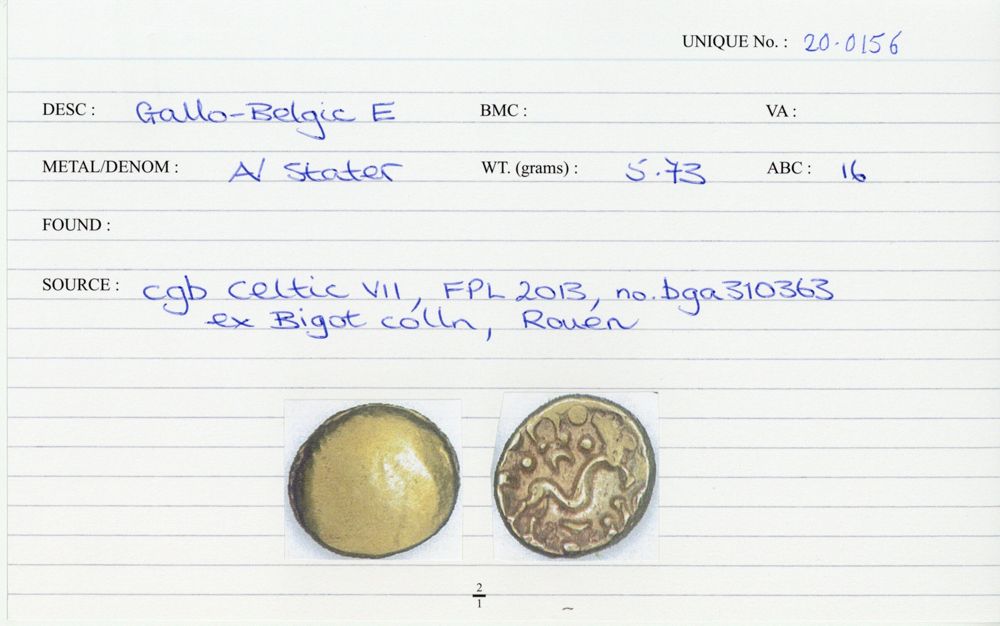 UNIQUE No. : 20.0156
DESC : Gallo-Belgic E BMC : VA :
METAL/DENOM : A/ Stater WT. (grams) : 5.73 ABC : 16
FOUND :
SOURCE : cgb Celtic VII, FPL 2013, no. bga310363
ex Bigot colln, Rouen
2
1